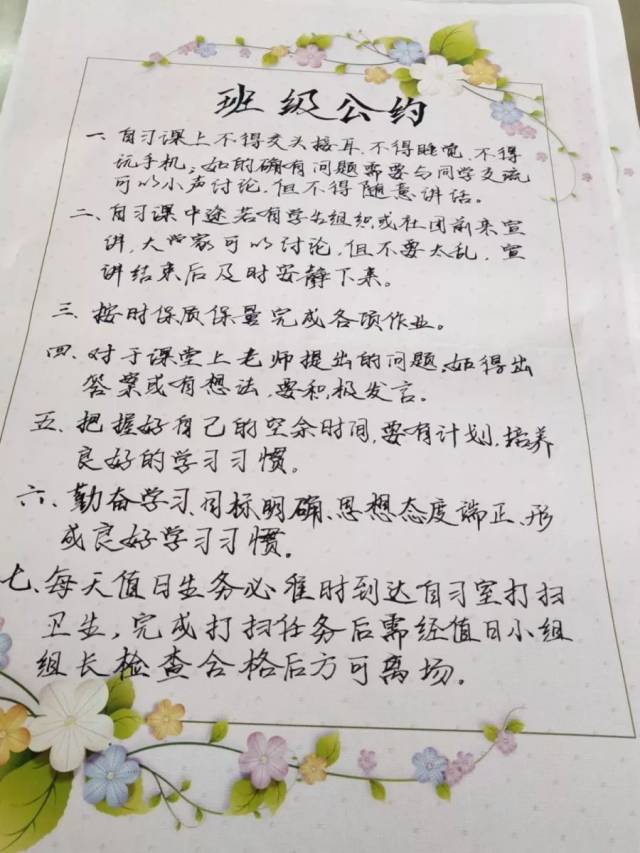 班级公约
一、自习课上不得交头接耳、不得睡觉、不得
玩手机，如的确有问题需要与同学交流
可以小声讨论，但不得随意讲话。
二、自习课中途若有学生组织或社团前来宣
讲，大家可以讨论，但不要太乱，宣
讲结束后及时安静下来。
三、按时保质保量完成各项作业。
四、对于课堂上老师提出的问题，如得出
答案或有想法，要积极发言。
五、把握好自己的空余时间，要有计划，培养
良好的学习习惯。
六、勤奋学习、目标明确、思想态度端正、形
成良好学习习惯。
七、每天值日生务必准时到达自习室打扫
卫生，完成打扫任务后需经值日小组
组长检查合格后方可离场。